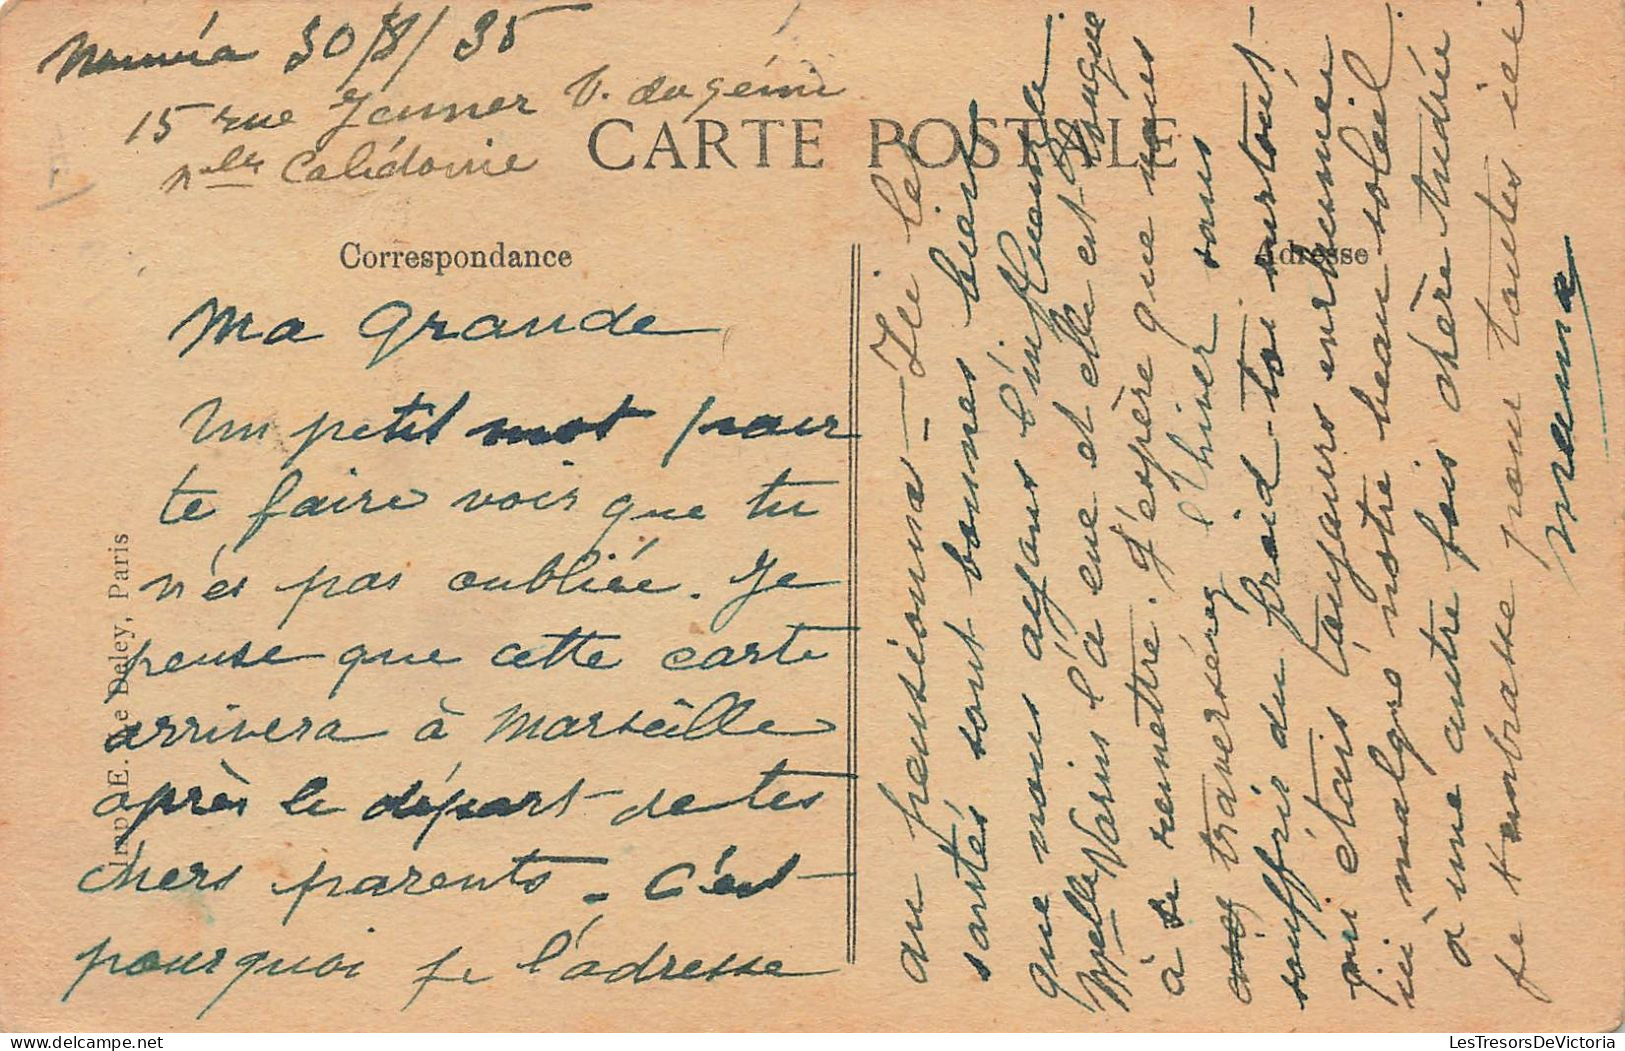 Nouméa 30/8/35
15 rue Jenner V. du génie
Nlle Calédonie
CARTE POSTALE
Correspondance
Adresse
Ma Grande
Un petit mot pour
te faire voir que tu
n'es pas oubliée. Je
pense que cette carte
arrivera à Marseille
après le départ de tes
chers parents. C'est
pourquoi je l'adresse
au pensionna - Ici les
santés sont bonnes bien
que nous ayons l'influenza
Melle Varins l'a eue et elle est longue
à se remettre. J'espère que vous
traverserez l'hiver sans
souffris du froid - toi surtout
qui étais toujours enrhumée
ici malgre notre beau soleil
à une autre fois chère
je t'embrasse pour toutes ici
Imp. E. Le Deley, Paris
LesTresorsDeVictoria